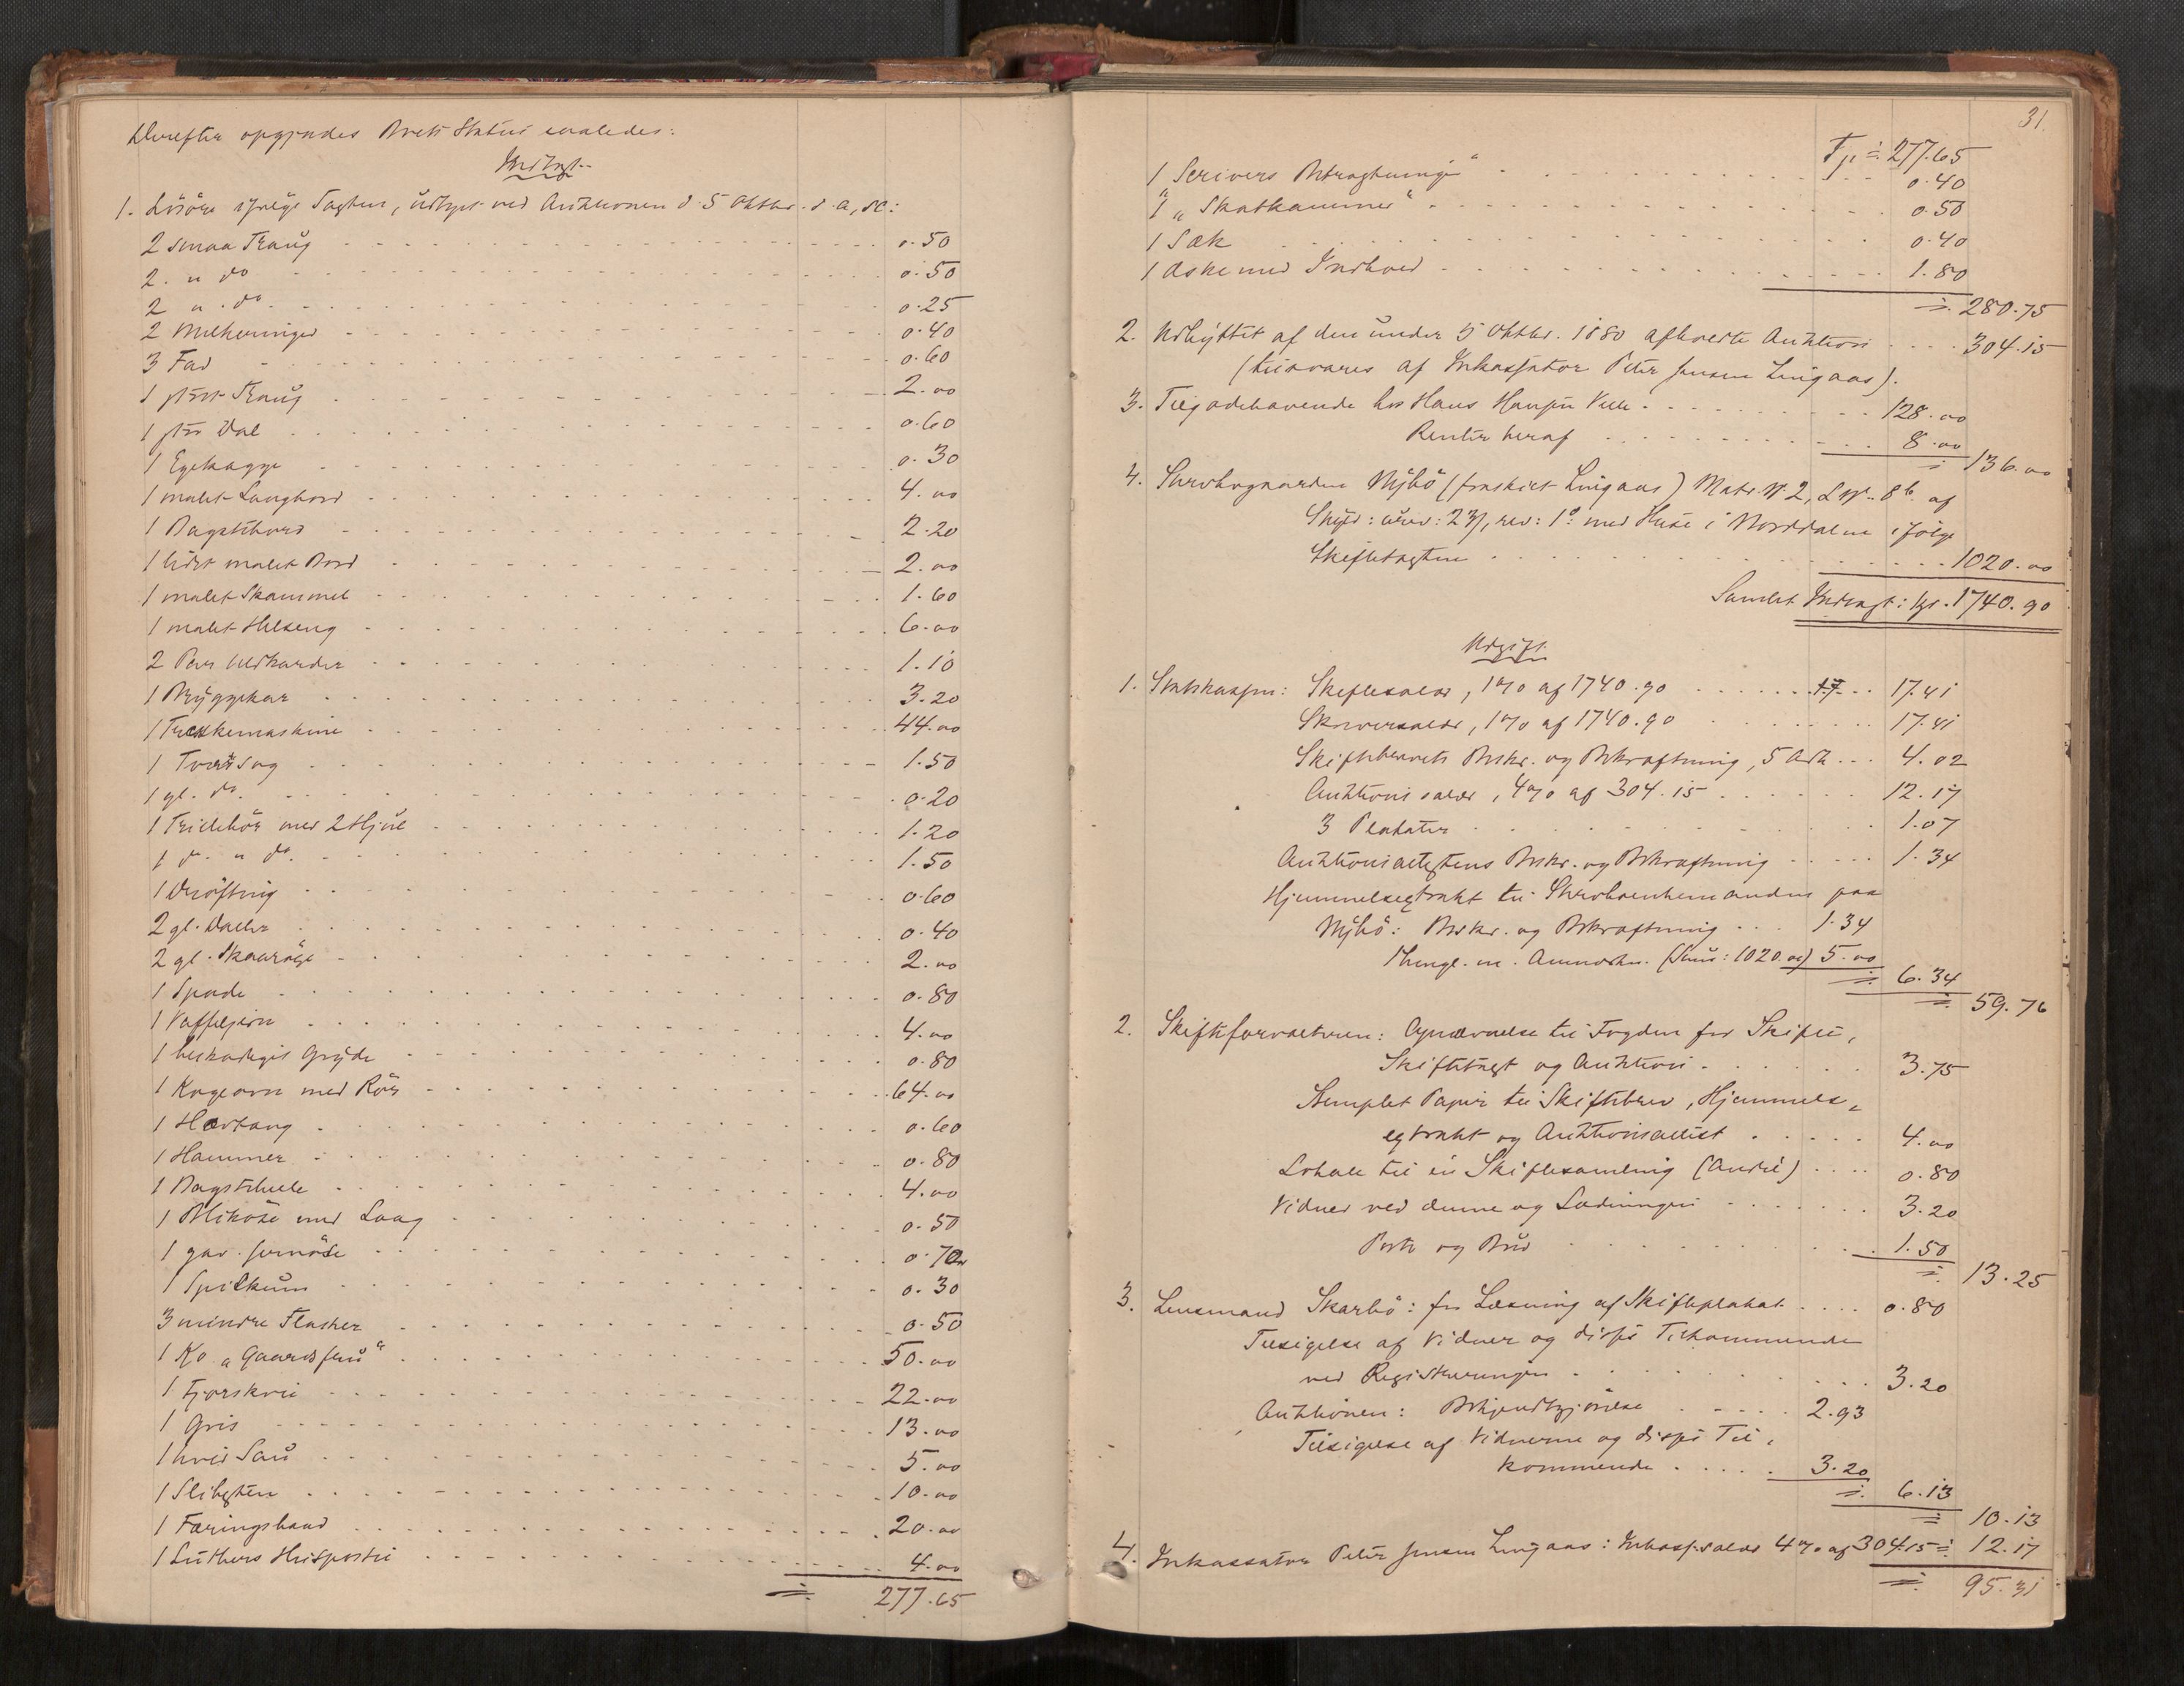 Derefter opgjordes Boets Status saaledes:
Indtægt.
1. Lösöre ifølge Taxten, udlagt ved Auktionen d. 5 Oktbr. d. A, nl:
2 smaa Traug 0.50
2 " do 0.50
2 " do 0.25
2 Melkeringer 0.40
3 Fad 0.60
1 stort Traug 2.00
1 stor Dal 0.60
1 Egekagge 0.30
1 malet Langbord 4.00
1 Bagstebord 2.20
1 lidet malet Bord 2.00
1 malet Skammel 1.60
1 malet Helseng 6.00
2 Par Uldkarder 1.10
1 Bryggekar 3.20
1 Træskemaskine 44.00
1 Tværsag 1.50
1 gl. do. 0.20
1 Trillebör med 2 Hjul 1.20
1 do " do. 1.50
1 Dröftning 0.60
2 gl. Daller 0.40
2 gl. Skaaröxe 2.00
1 Spade 0.80
1 Vaffeljern 4.00
1 beskadiget Gryde 0.80
1 Kogeovn med Rör 64.00
1 Hovtang 0.60
1 Hammer 0.80
1 Bagstehelle 4.00
1 Bliköse med Laag 0.50
1 gav. Jernöse 0.70
1 Spilkum 0.30
3 mindre Flasker 0.50
1 Ko "Gaardsfru" 50.00
1 Fjorskvie 22.00
1 Gris 13.00
1 hvid Sau 5.00
1 Slibesten 10.00
1 Færingsbaad 20.00
1 Luthers Huspostil 4.00
= 277.65
31.
Fp = 277.65
1 Scrivers Betragtninger" 0.40
1 "Skatkammer" 0.50
1 Sæk 0.40
1 Æske med Indhold 1.80
= 280.75
2. Udbyttet af den under 5 Oktbr. 1880 afholdte Auktion 304.15
(tilsvares af Inkassator Peter Jensen Lingaas).
3. Tilgodehavende hos Hans Hansen 128.00
Renter heraf 8.00
= 136.00
4. Selvejergaarden Nybö (fraskilt Lingaas) Matr. No 2, L. No. 8b af
Skyld: urev: 23/, rev: 1 med Huse i Norddalen ifölge
Skiftetaxten 1020.00
Samlet Indtægt: kr. 1740.90
Udgift.
1. Statskassen: Skiftesalær, 1% af 1740.90 17.41
Skriversalær, 1% af 1740.90 17.41
Skiftebrevets Beskr. og Bekræftning, 5 Ark 4.02
Auktionssalær, 4% af 304.15 12.17
3 Plakater 1.07
Auktionsattestens Beskr. og Bekræftning 1.34
Hjemmelsextrakt til paa
Nybö: Beskr. og Bekræftning 1.34
Thingl. m. Anmærkn. (Sum: 1020.00) 5.00
= 6.34
= 59.76
2. Skifteforvalteren: Opnævnelse til Fogden for Skifte,
Skiftetaxt og Auktion 3.75
Stemplet Papir til Skiftebrev, Hjemmels-
extrakt og Auktionsattest 4.00
Lokale til en Skiftesamling (Andel) 0.80
Vidner ved denne og Sluttningen 3.20
Porto og Bud 1.50
= 13.25
3. Lensmand Skarbö: for Læsning af Skifteplakat 0.80
Tilsigelse af Vidner og disses Tilkommende
ved Registreringen 3.20
Auktionen: Bekjendtgjörelse 2.93
Tilsigelse af Vidnerne og disses Til-
kommende 3.20
= 6.13
= 10.13
4. Inkassator Peter Jensen Lingaas: Inkass.salær 4% af 304.15 = 12.17
= 95.31